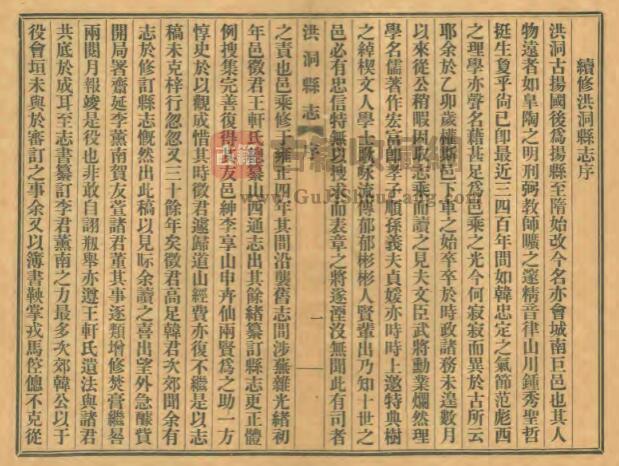 續修洪洞縣志序
洪洞古揚國後爲揚縣至隋始改今名亦會城南巨邑也其人
物遠者如皐陶之明刑弼教師曠之邃精音律山川鍾秀聖哲
挺生夐乎尙已卽最近三四百年間如韓忠定之氣節范彪西
之理學亦聲名藉甚足爲邑乘之光今何寂寂而異於古所云
耶余於乙卯歲權斯邑下車之始卒卒於時政諸務未遑數月
以來從公稍暇因取志乘而讀之見夫文臣武將勳業爛然理
學名儒著作宏富卽孝子順孫義夫貞媛亦時時上邀特典樹
之綽楔文人學士歌咏流傳郁郁彬彬人賢輩出乃知十世之
邑必有忠信特無以搜求而表章之將遂湮沒無聞此有司者
洪洞縣志 序 一
之責也邑乘修于雍正四年其間沿襲舊志間涉蕪雜光緖初
年邑徵君王軒氏總纂山西通志出其餘緖纂訂縣志更正體
例搜集完善復得其友邑紳李享山申卉仙兩賢爲之助一方
惇史於以觀成惜其時徵君遽歸道山經費亦復不繼是以志
稿未克梓行忽忽又三十餘年矣徵君高足韓君次郊聞余有
志於修訂縣志慨然出此稿以見眎余讀之喜出望外急釀貲
開局署齋延李薰南賀友萱諸君董其事逐類增修焚膏繼晷
兩閱月報竣是役也非敢自詡㼚舉亦遵王軒氏遺法與諸君
共底於成耳至志書纂訂李君薰南之力最多次郊韓公以于
役會垣未與於審訂之事余又以簿書鞅掌戎馬倥傯不克從
古籍
www.GujiShuFang.com